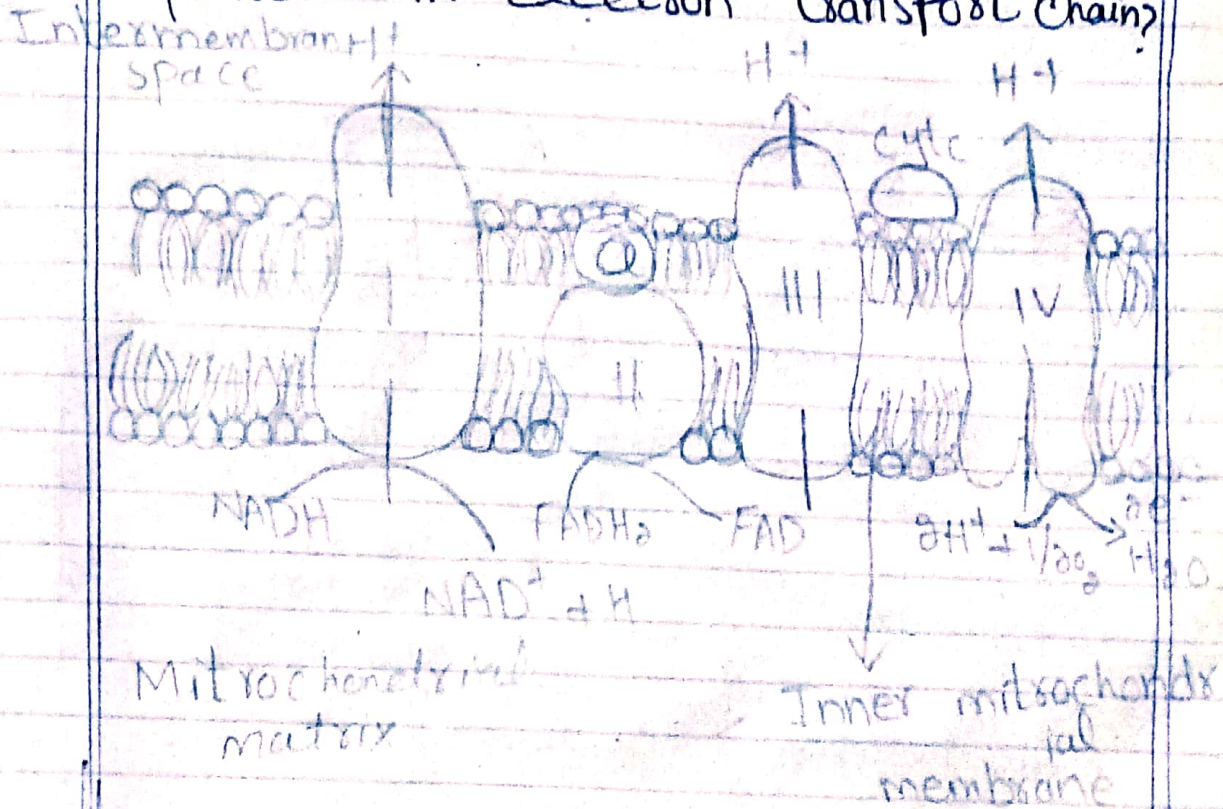 in Electron transport chain?
Intermembran H+
space
H+
H+
cytc
Q
I
II
III
IV
NADH
FADH2
FAD
2H+ + 1/2O2
H2O
2e-
NAD+ + H
Mitrochondrial
matrix
Inner mitrochondr
ial
membrane